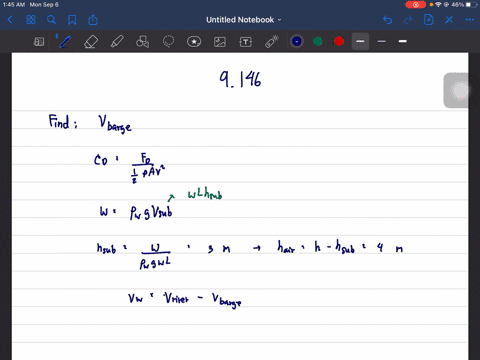 1:45 AM Mon Sep 6
46%
Untitled Notebook
9.146
Find: V_barge
C_D = F_D / (1/2 ρAV²)
W = ρ_w g V_sub → wLh_sub
h_sub = W / (ρ_w g w L) = 3 m → h_air = h - h_sub = 4 m
V_w = V_river - V_barge